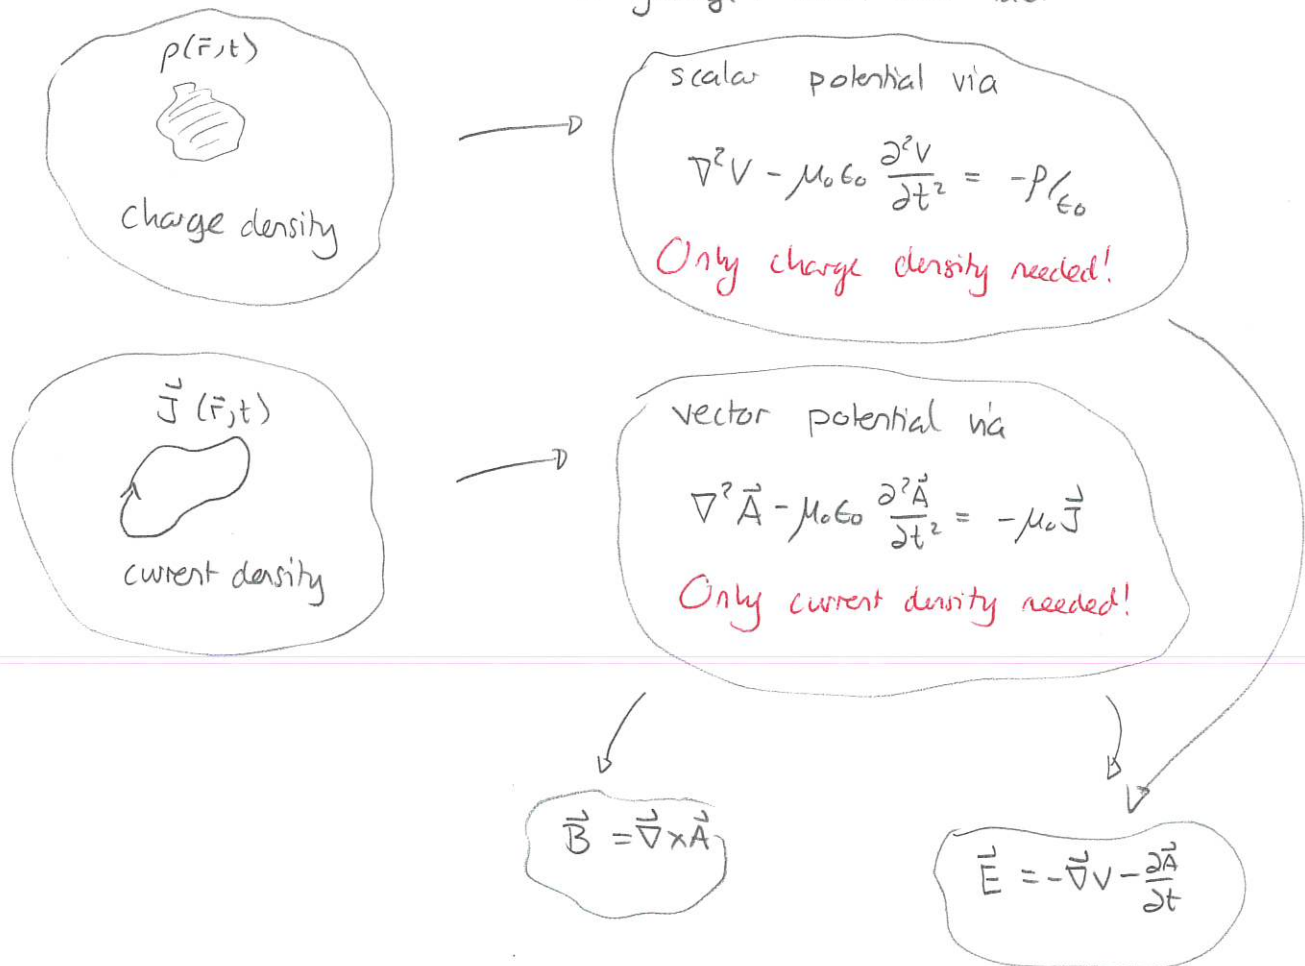 ρ(r̄,t)
charge density
scalar potential via
∇²V - μ₀ε₀ ∂²V/∂t² = -ρ/ε₀
Only charge density needed!
J⃗ (r̄,t)
current density
vector potential via
∇²A⃗ - μ₀ε₀ ∂²A⃗/∂t² = -μ₀J⃗
Only current density needed!
B⃗ = ∇⃗×A⃗
E⃗ = -∇⃗V - ∂A⃗/∂t